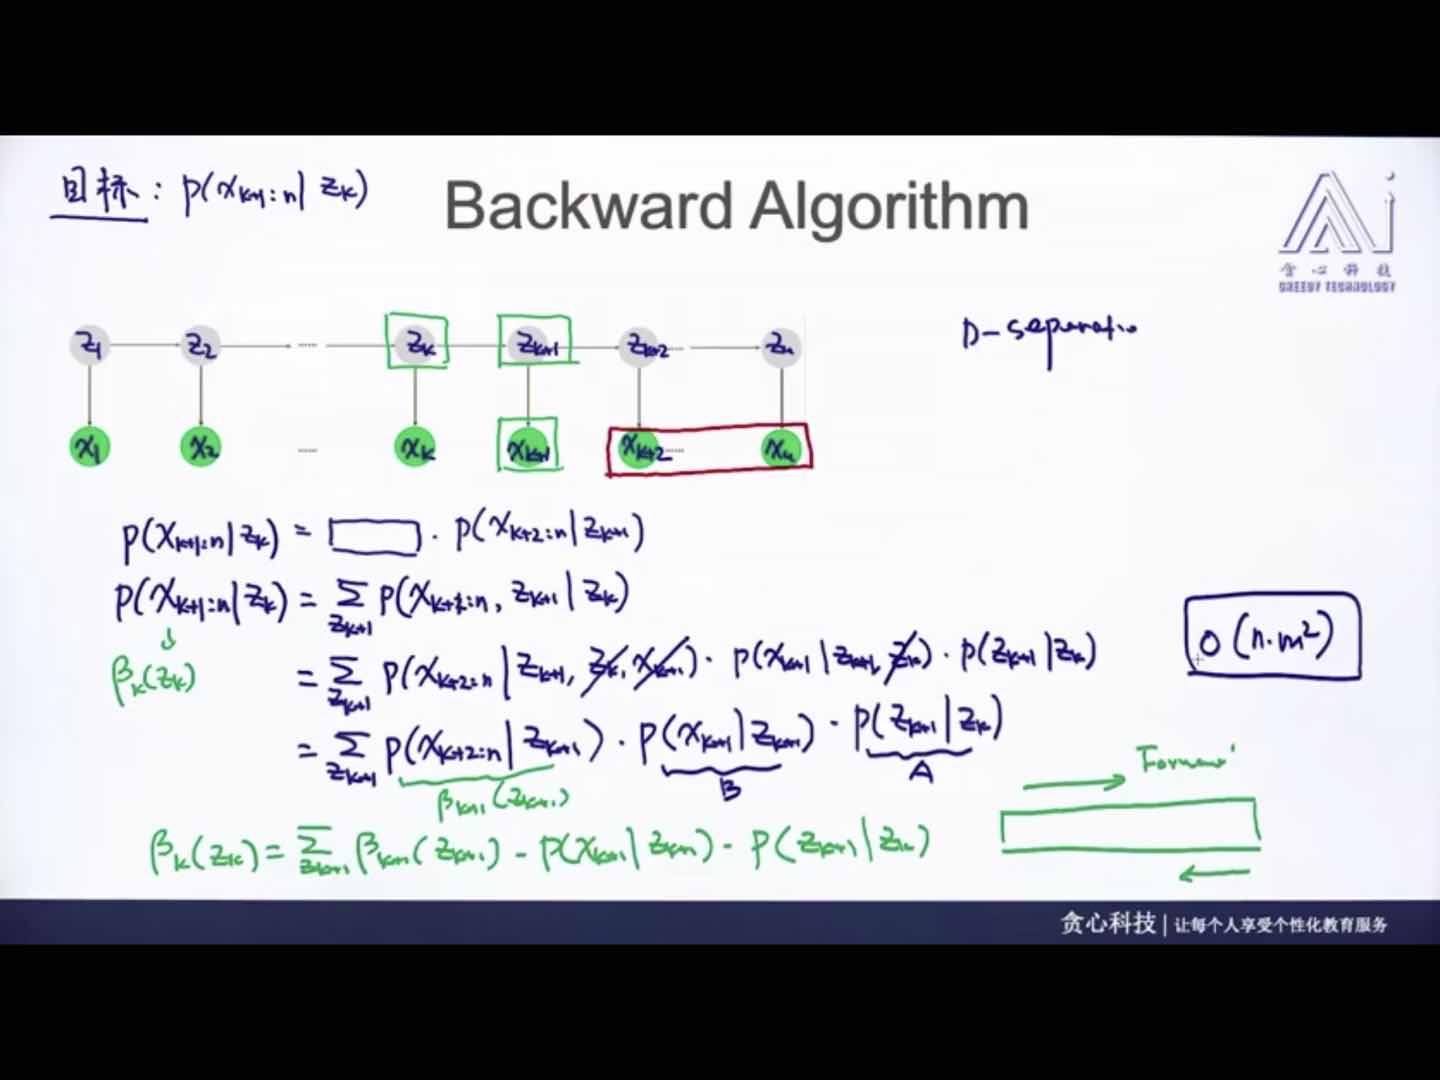 目标: p(x_{k+1:n} | z_k)
Backward Algorithm
贪心科技
GREEDY TECHNOLOGY
z_1 z_2 ...... z_k z_{k+1} z_{k+2} ...... z_n
D-separatio
x_1 x_2 ...... x_k x_{k+1} x_{k+2} ...... x_n
p(x_{k+1:n} | z_k) = □ · p(x_{k+2:n} | z_{k+1})
p(x_{k+1:n} | z_k) = Σ_{z_{k+1}} p(x_{k+1:n}, z_{k+1} | z_k)
β_k(z_k)
= Σ_{z_{k+1}} p(x_{k+2:n} | z_{k+1}, z_k, x_{k+1}) · p(x_{k+1} | z_{k+1}, z_k) · p(z_{k+1} | z_k)
O(n·m²)
= Σ_{z_{k+1}} p(x_{k+2:n} | z_{k+1}) · p(x_{k+1} | z_{k+1}) · p(z_{k+1} | z_k)
β_{k+1}(z_{k+1}) B A
β_k(z_k) = Σ_{z_{k+1}} β_{k+1}(z_{k+1}) - p(x_{k+1} | z_{k+1}) - p(z_{k+1} | z_k)
贪心科技 | 让每个人享受个性化教育服务